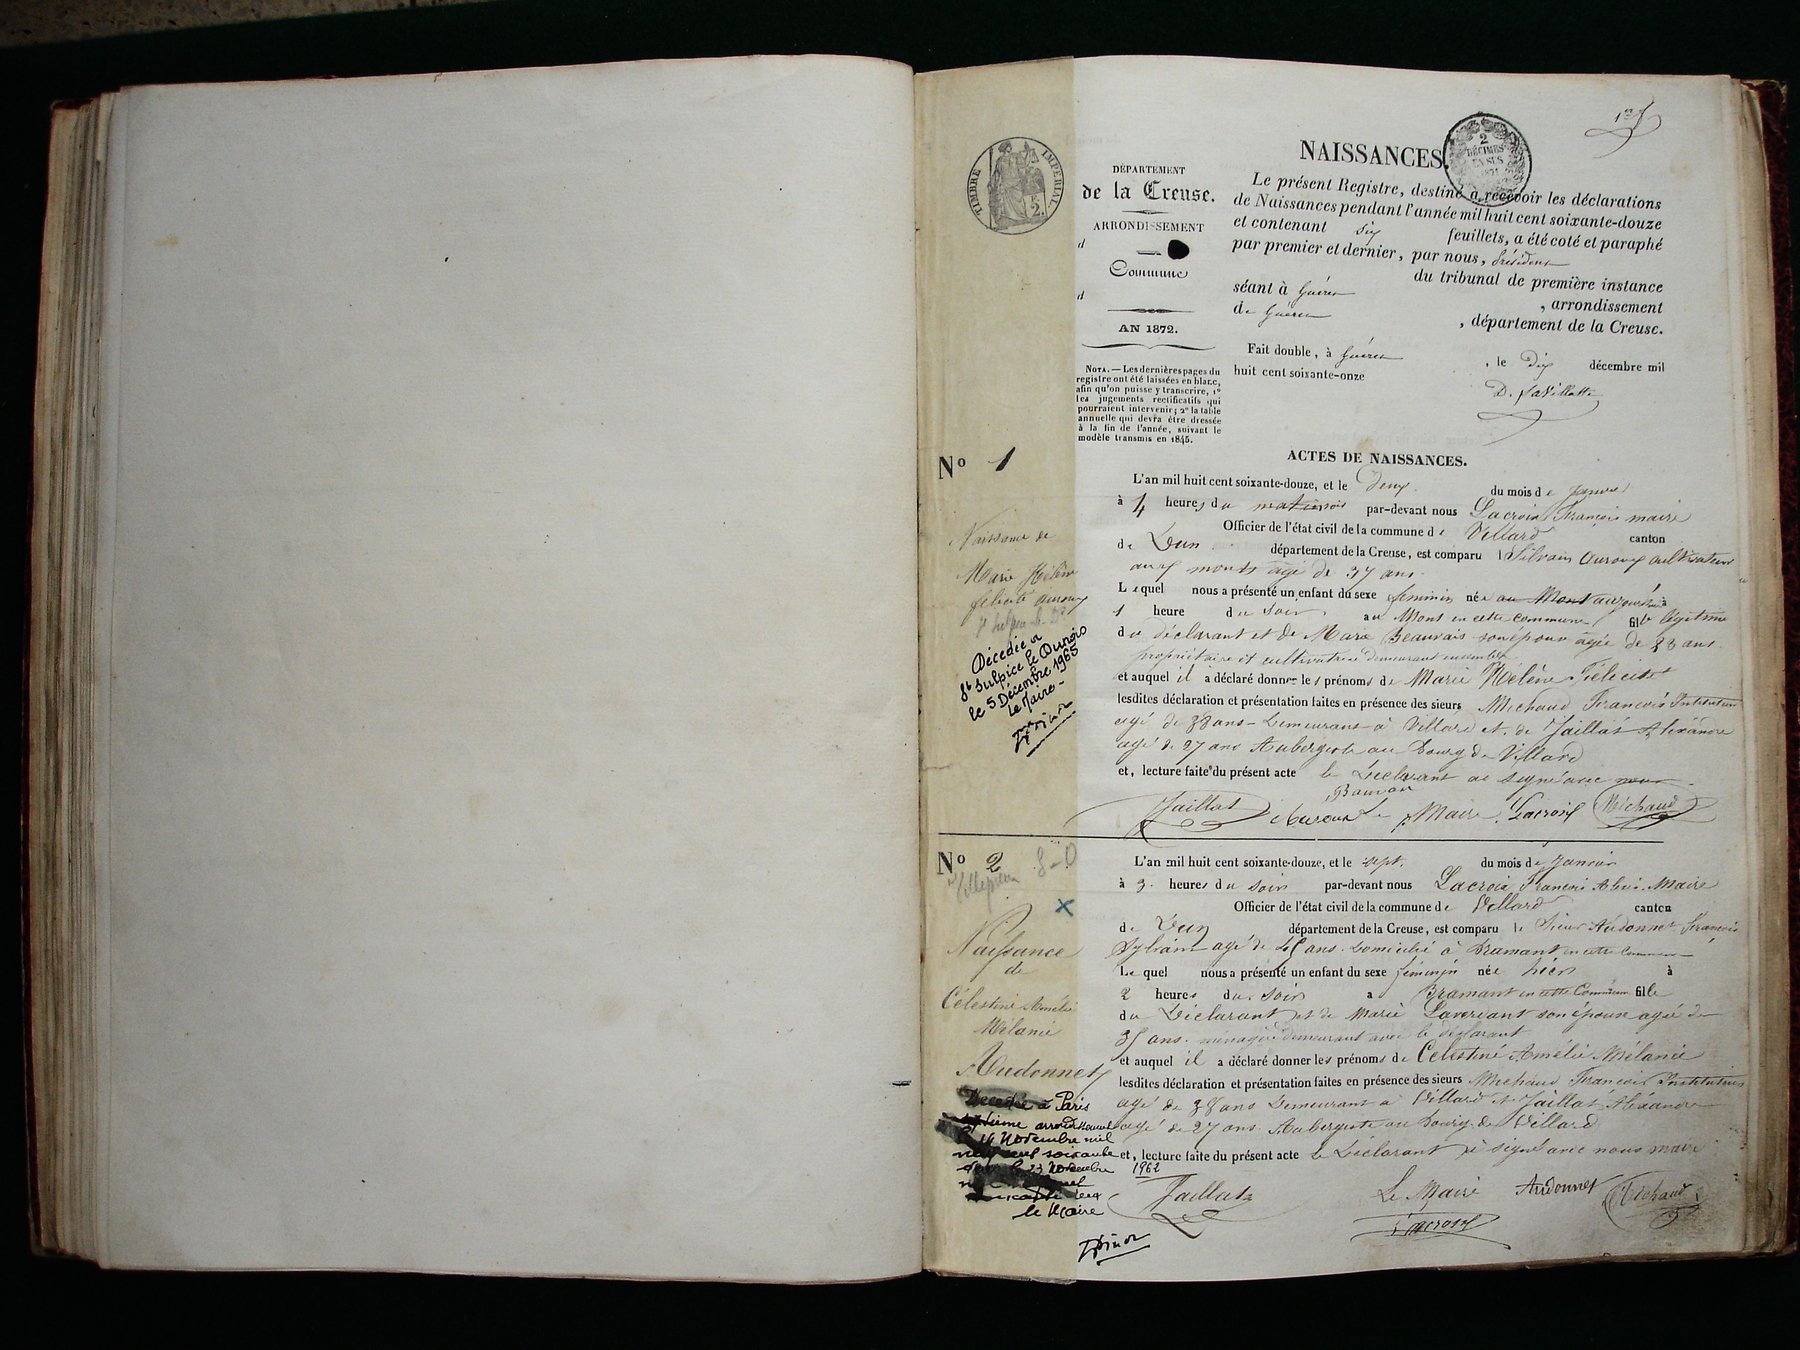 1er
TIMBRE IMPERIAL
2
DÉCIMES
EN SUS
1871
DÉPARTEMENT
de la Creuse.
ARRONDISSEMENT
d
Commune
d
AN 1872.
NOTA. — Les dernières pages du
registre ont été laissées en blanc,
afin qu'on puisse y transcrire, 1º
les jugements rectificatifs qui
pourraient intervenir; 2º la table
annuelle qui devra être dressée
à la fin de l'année, suivant le
modèle transmis en 1845.
NAISSANCES
Le présent Registre, destiné a recevoir les déclarations
de Naissances pendant l'année mil huit cent soixante-douze
et contenant six feuillets, a été coté et paraphé
par premier et dernier, par nous, Président
du tribunal de première instance
séant à Guéret , arrondissement
de Guéret , département de la Creuse.
Fait double, à Guéret , le dix décembre mil
huit cent soixante-onze
D. Lavillatte
ACTES DE NAISSANCES.
Nº 1
Naissance de
Marie Hélène
félicité auroux
Décédée à
St Sulpice le Dunois
le 5 Décembre 1965
Le Maire -
L'an mil huit cent soixante-douze, et le deux du mois de Janvier
à 4 heures du soir par-devant nous Lacroix François maire
Officier de l'état civil de la commune de Villard canton
de Dun département de la Creuse, est comparu Silvain auroux cultivateur
aux monts agé de 37 ans.
Lequel nous a présenté un enfant du sexe feminin née au Mont aujourd'hui à
1 heure du soir au Mont en cette commune fille légitime
du déclarant et de Marie Beauvais son épouse agée de 33 ans
propriétaire et cultivatrice demeurant ensemble
et auquel il a déclaré donner les prénoms de Marie Hélène Félicité
lesdites déclaration et présentation faites en présence des sieurs Michaud François Instituteur
agé de 38 ans demeurant à Villard et de Jaillat Alexandre
agé de 27 ans Aubergiste au Bourg de Villard
et, lecture faite du présent acte le Déclarant a signé avec nous
Jaillat Auroux Le Maire Lacroix Michaud
Nº 2 S-D
Villepreux
X
Naissance
de
Célestine Amélie
Mélanie
Audonnet
Décédée à Paris
septième arrondissement
le 19 Novembre mil
neuf cent soixante
deux le 23 novembre 1962
soixante deux
le Maire
L'an mil huit cent soixante-douze, et le sept du mois de Janvier
à 3 heures du soir par-devant nous Lacroix François Maire
Officier de l'état civil de la commune de Villard canton
de Dun département de la Creuse, est comparu le Sieur Audonnet François
Sylvain agé de ans domicilié à Bramant en cette commune
Lequel nous a présenté un enfant du sexe féminin née hier à
2 heures du soir a Bramant en cette Commune fille
du Déclarant et de Marie son épouse agée de
35 ans ménagère demeurant avec le déclarant
et auquel il a déclaré donner les prénoms de Célestine Amélie Mélanie
lesdites déclaration et présentation faites en présence des sieurs Michaud François Instituteur
agé de 38 ans demeurant à Villard et Jaillat Alexandre
agé de 27 ans Aubergiste au Bourg de Villard
et, lecture faite du présent acte le Déclarant a signé avec nous maire
Jaillat Le Maire Audonnet Michaud
Lacroix